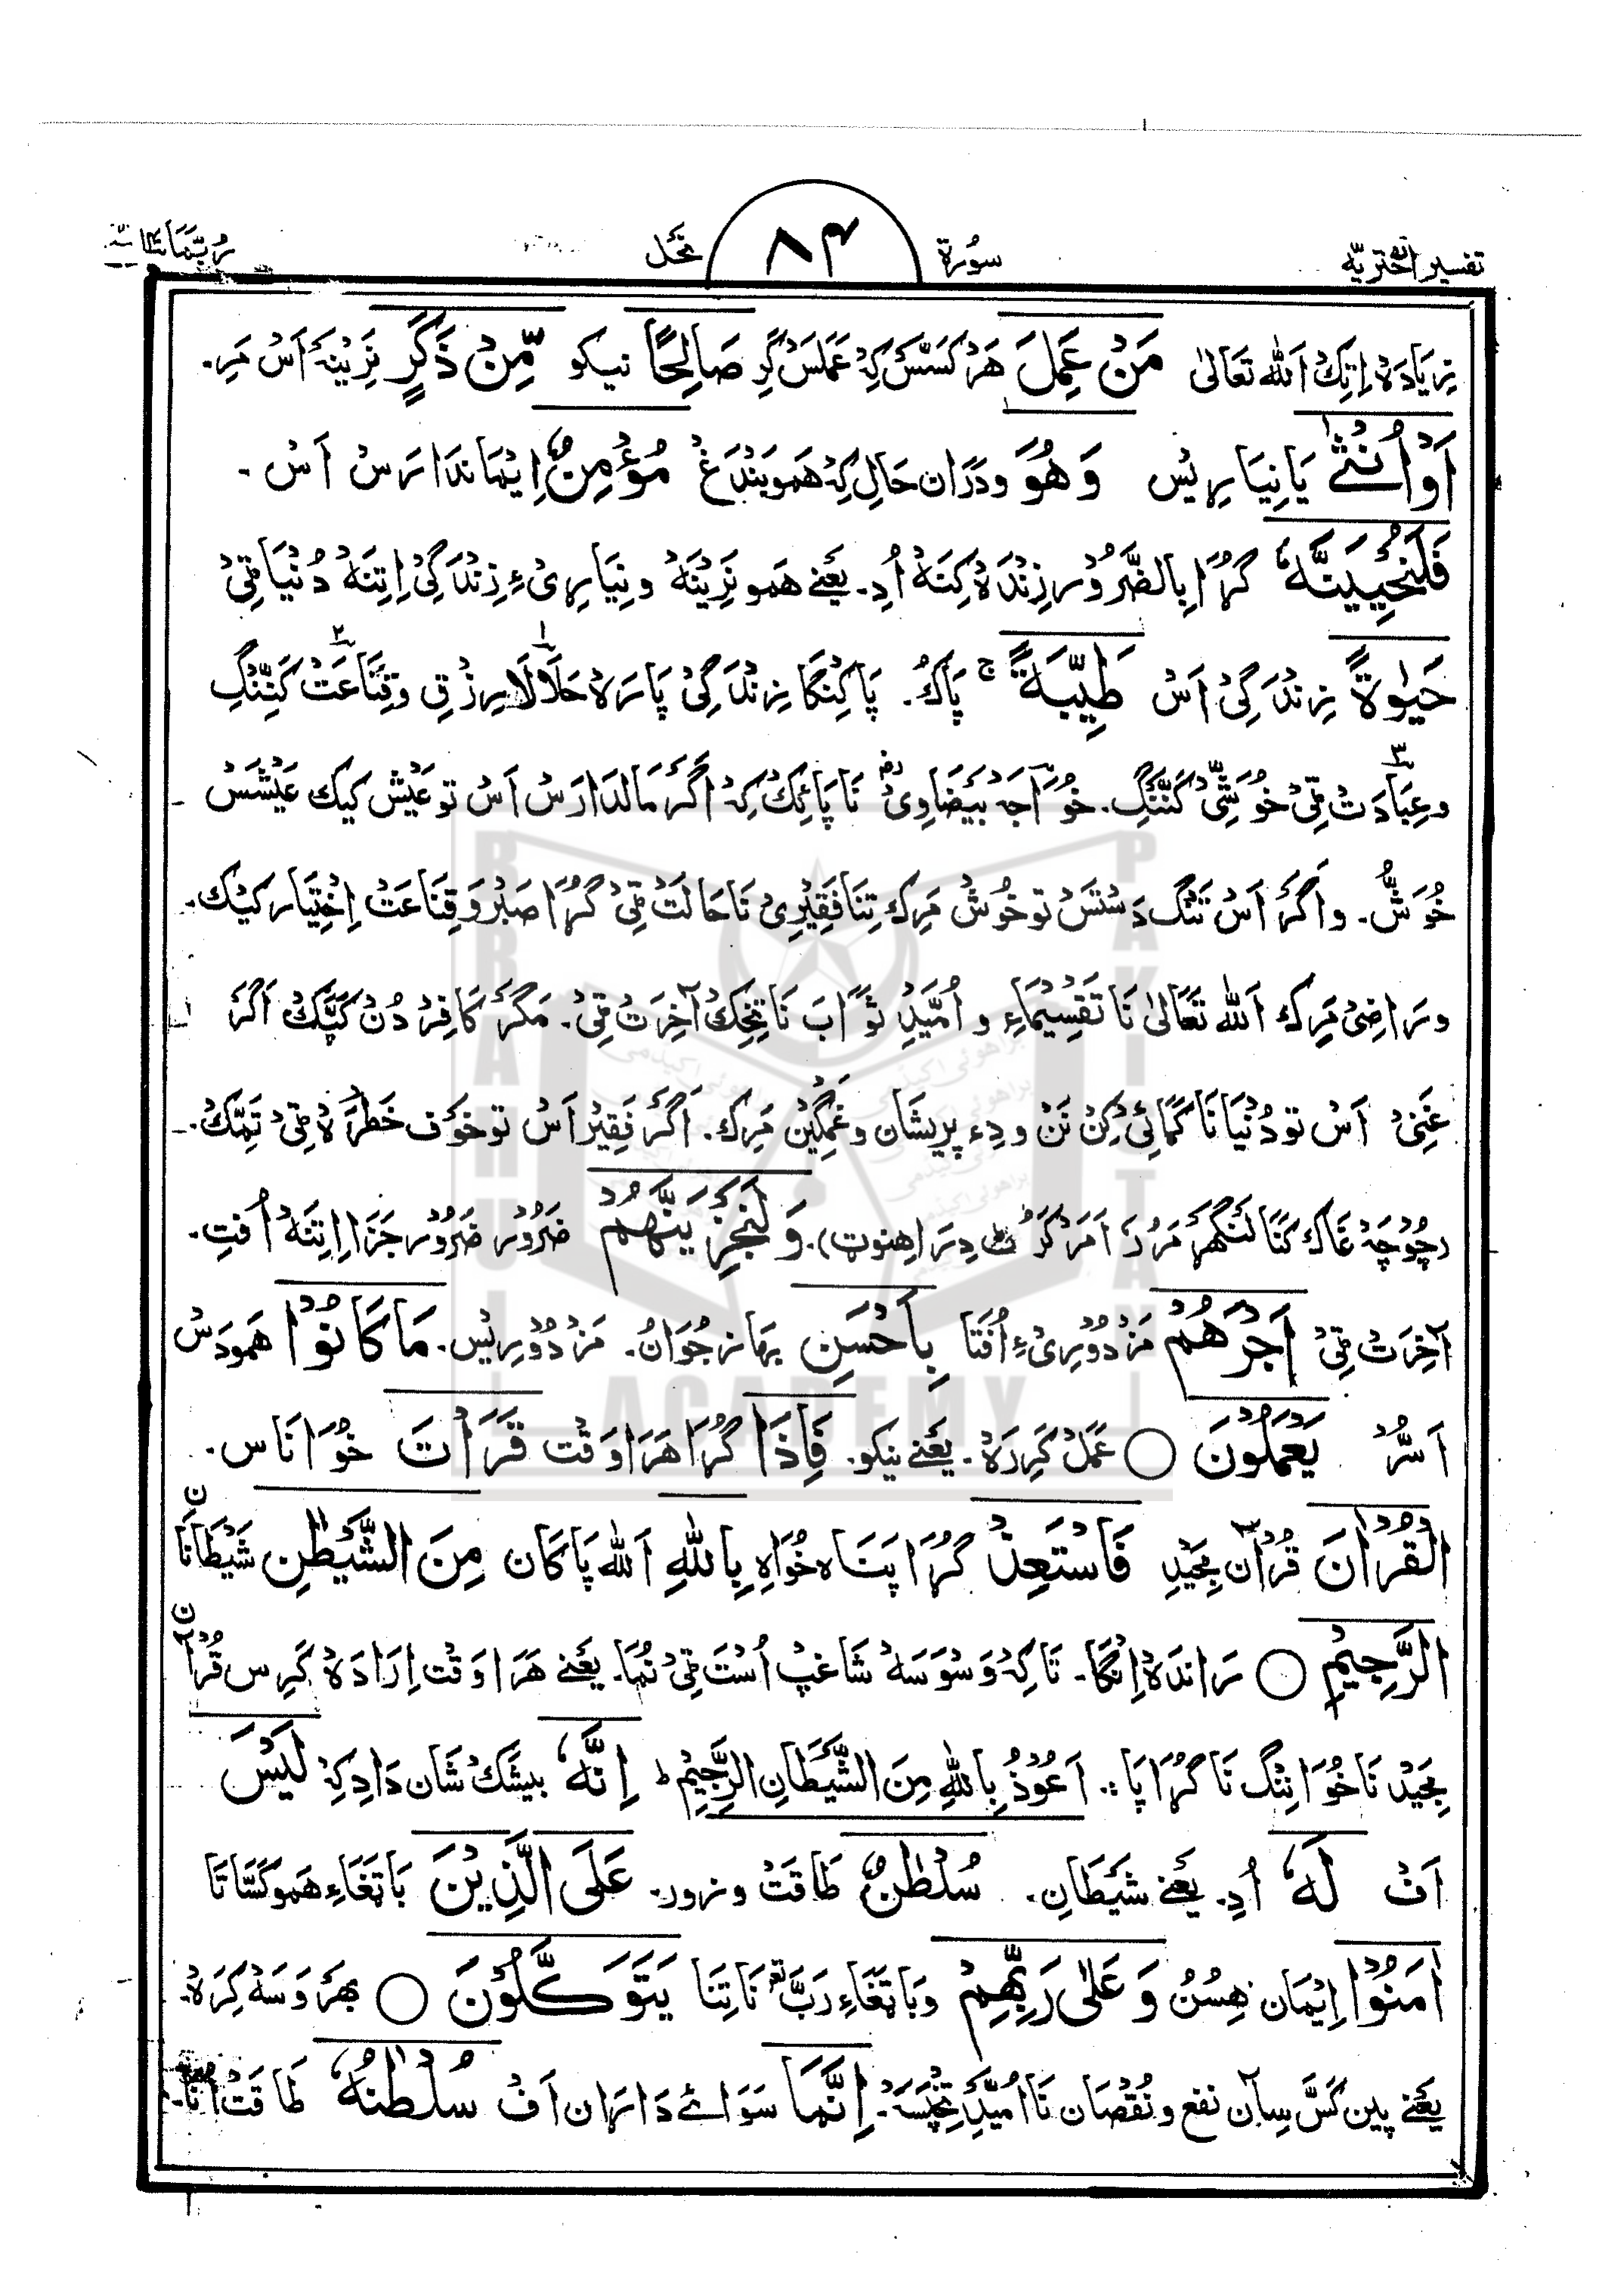 تفسیر اختریہ
سُورۃ
۸۴
نَحَل
رُبَمَا ۱۴
زِیَادَہْ اِتِکْ اَللّٰہ تَعَالیٰ مَنْ عَمِلَ ھَرْ کَسَّسْ کِہْ عَمَلَسْ کَرِ صَالِحًا نیکو مِّنْ ذَکَرٍ نَرِیْنَہْ اَسْ مَرِ۔
اَوْاُنْثٰی یَا نِیَارِیْس وَھُوَ و دَرَان حَالِ کِہْ ھَمو بَنْدَغْ مُؤْمِنٌ اِیْمَاندَارَسْ اَسْ ۔
فَلَنُحْیِیَنَّہٗ گُڑَا بِالضَّرُوْر زِنْدَہْ کِنَہْ اُدِ۔ یَعْنے ھَمو نَرِیْنَہْ و نِیَارِیْءِ زِنْدَگِیْ اِتِنَہْ دُنْیَا ٹِیْ
حَیٰوۃً زِنْدَگِیْ اَسْ طَیِّبَۃً ج پَاکُ۔ پَاکِنگَا زِنْدَگِیْ پَارَہْ حَلَالَا رِزْقِ وقِنَاعَتْ کَنِّنْگِ
وعِبَادَتْ ٹِیْ خُوَشِّیْ کَنَّنْگِ۔ خُوَاجَہ بَیْضَاوِیْ نَا پَائِکْ کِہْ اَگَرْ مَالدَارَسْ اَسْ تو عَیْش کیک عَیْشَسْ
خُوَشُّ۔ واَگَرْ اَسْ تَنْگ دَسْتَسْ تو خُوشْ مَرِک تِنَا فَقِیْرِیْ نَا حَالَتْ ٹِیْ گُڑَا صَبْر وَ قِنَاعَتْ اِخْتِیَار کَیْک۔
ورَاضِیْ مَرِک اَللّٰہ تَعَالیٰ نَا تَقْسِیْمَاءِ و اُمِّیْدِ ثَوَابَ نَا تِخِکْ آخِرَتْ ٹِیْ۔ مَگَرْ کَافِرْ دُنْ کَپَّکْ اَگَرْ
غَنِیْ اَسْ تو دُنْیَا نَا کَمَائِیْ کِنْ نَنْ و دِء پریشَان و غَمْگِیْن مَرِک۔ اَگَرْ فَقِیْر اَسْ تو خَوف خَطَرَہْ ٹِیْ تَمِّکْ۔
وَلَنَجْزِیَنَّھُمْ ضَرُوْر ضَرُوْر جَزَا اِتِنَہْ اُفتِ۔
آخِرَتْ ٹِیْ اَجْرَھُمْ مَزْدُوْرِیْءِ اُفْتَا بِاَحْسَنِ بھاز جُوَانُ۔ مَزْدُوْرِیْس۔ مَا کَانُوْا ھَمودَسْ
اَسُّرْ یَعْمَلُوْنَ ○ عَمَلْ کَرِرَہْ۔ یَعْنے نیکو۔ فَاِذَا گُڑَا ھَرَاوَقْت قَرَاْتَ خُوَانَاس۔
الْقُرْاٰنَ قُرْآن مَجِیْدِ فَاسْتَعِذْ گُڑَا پَنَاہ خُوَاہِ بِاللّٰہِ اَللّٰہ پَاکَان مِنَ الشَّیْطٰنِ شَیْطَانَان
الرَّجِیْمِ ○ رَانْدَہْ اِنْگَا۔ تَاکِہْ وَسْوَسَہْ شَاغِپْ اُسْتَ ٹِیْ نُمَا۔ یَعْنے ھَرَاوَقْت اِرَادَہْ کَرِس قُرْآن
مَجِیْد نَا خُوَانِنْگ نَا گُڑَا پَا :۔ اَعُوْذُ بِاللّٰہِ مِنَ الشَّیْطَانِ الرَّجِیْمِ ط اِنَّہٗ بیشَکْ شَان دَادِ کِہْ لَیْسَ
اَفْ لَہٗ اُدِ۔ یَعْنے شَیْطَانِ۔ سُلْطٰنٌ طَاقَتْ و زور۔ عَلَی الَّذِیْنَ بَاتَغَاءِ ھَمو کَسَّاتَا
اٰمَنُوْا اِیْمَان ھِسُنُ وَعَلٰی رَبِّھِمْ وبَاتَغَاءِ رَبّ نَا تِنَا یَتَوَکَّلُوْنَ ○ بھَرْوَسَہْ کِرَہْ۔
یَعْنے پین کَسّ سِیَان نفع و نُقْصَان نَا اُمِّیْدِ تِخْپَسَہْ۔ اِنَّمَا سَوَائے دَارَان اَفْ سُلْطٰنُہٗ طَاقَتْ اُنَا۔